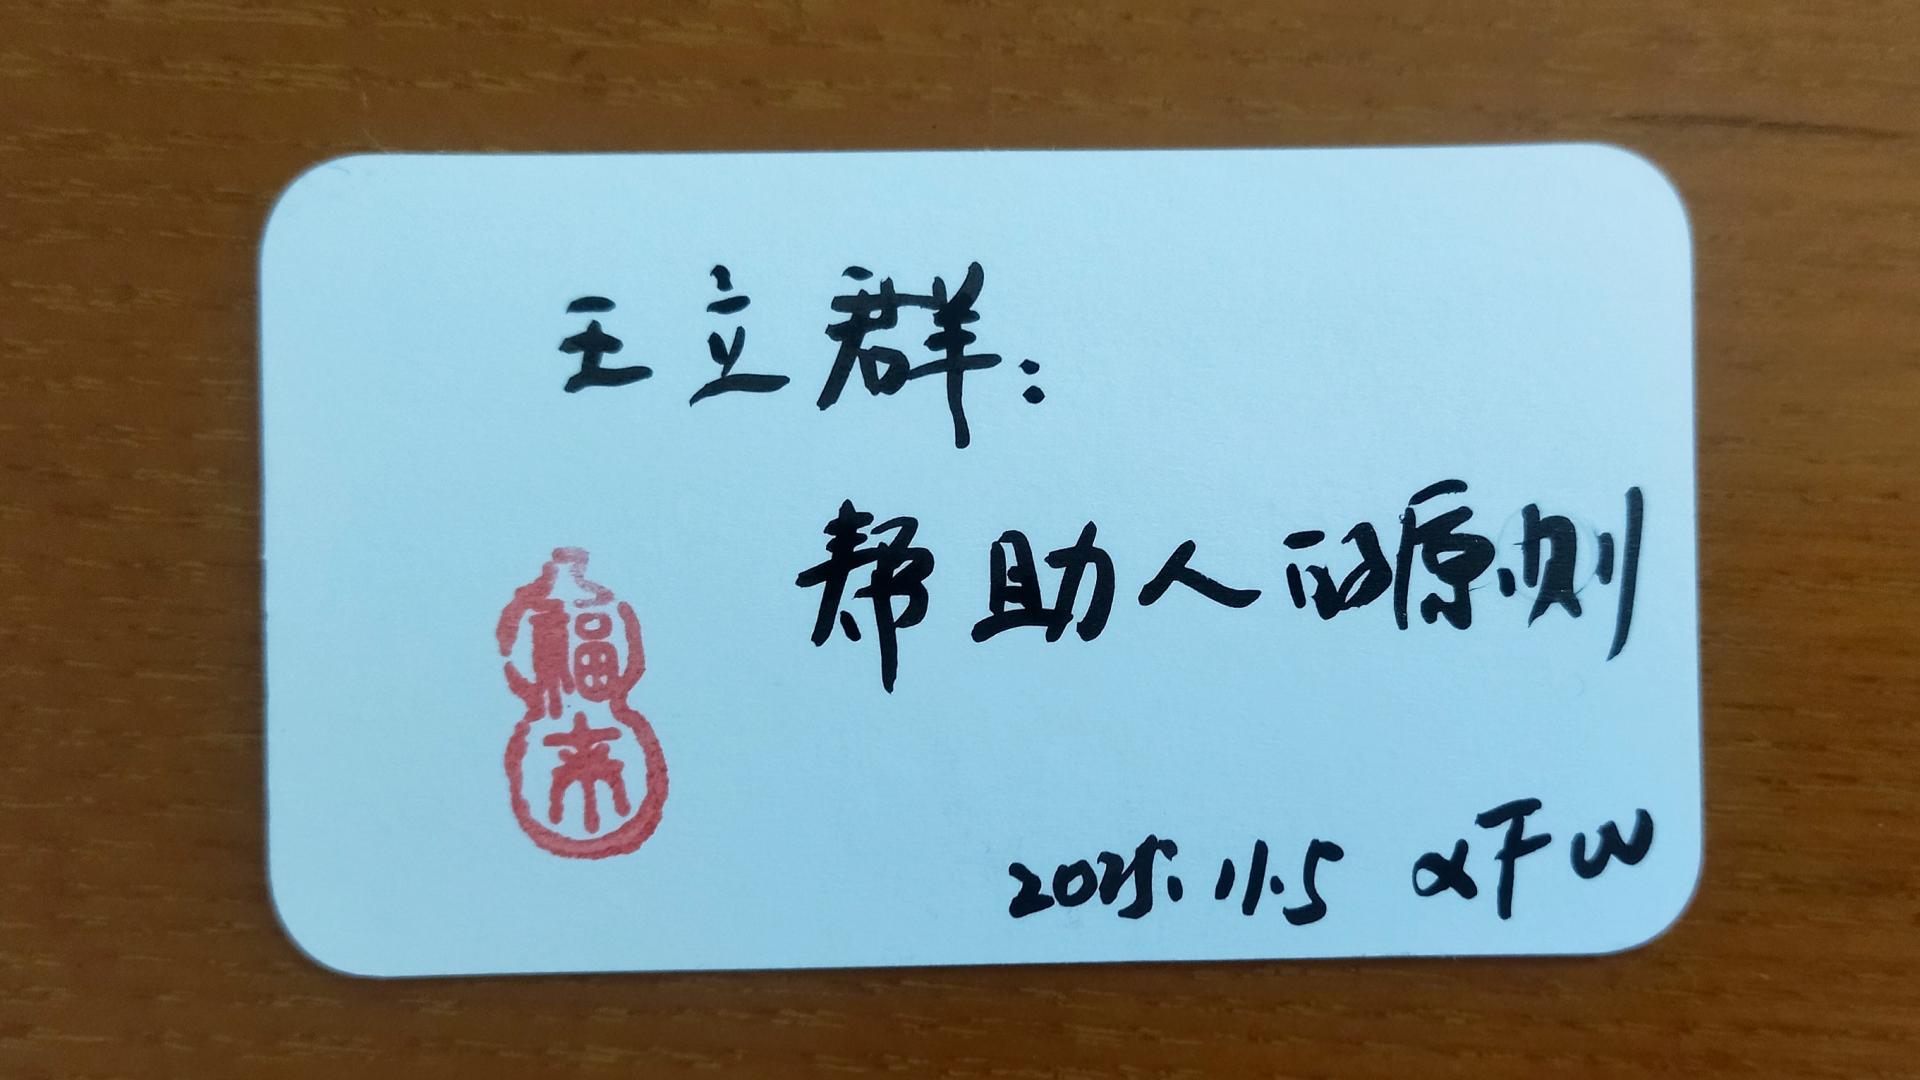 王立群：
帮助人的原则
福来
2025.11.5 XFW